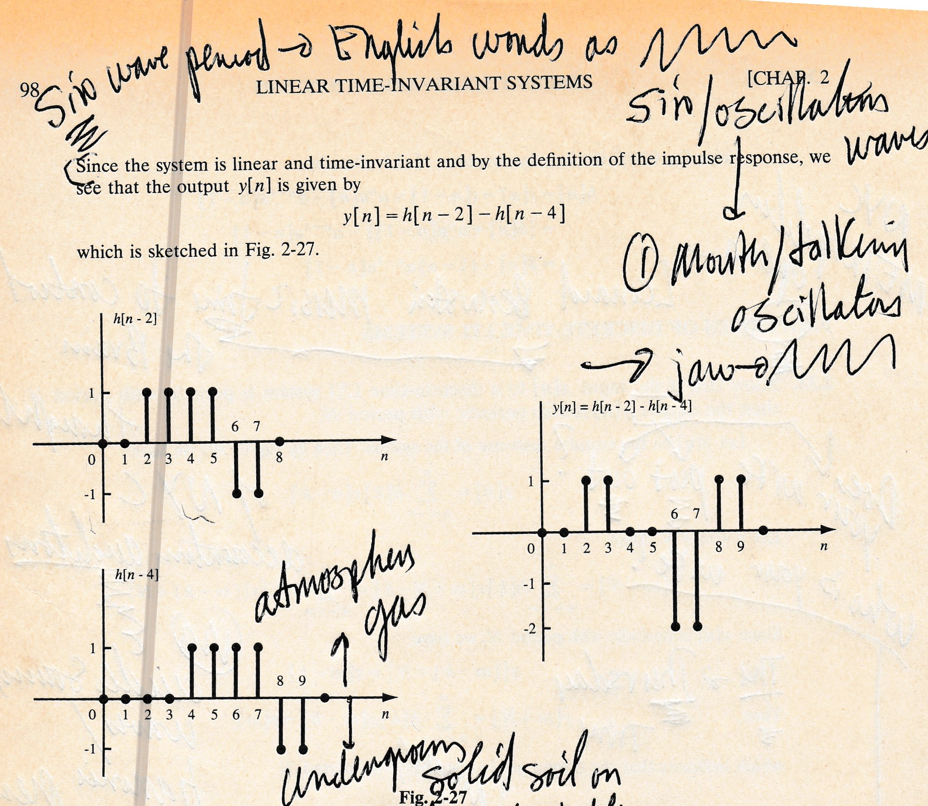 Sin wave period → English words as
98
LINEAR TIME-INVARIANT SYSTEMS
[CHAP. 2
Sin/oscillators
waves
Since the system is linear and time-invariant and by the definition of the impulse response, we
see that the output y[n] is given by
y[n] = h[n − 2] − h[n − 4]
which is sketched in Fig. 2-27.
① mouth/talking
oscillators
→ jaw →
h[n - 2]
1
6 7
0 1 2 3 4 5 8 n
-1
y[n] = h[n - 2] - h[n - 4]
1
6 7
0 1 2 3 4 5 8 9 n
-1
-2
atmosphere
gas
h[n - 4]
1
8 9
0 1 2 3 4 5 6 7 n
-1
solid soil on
Fig. 2-27